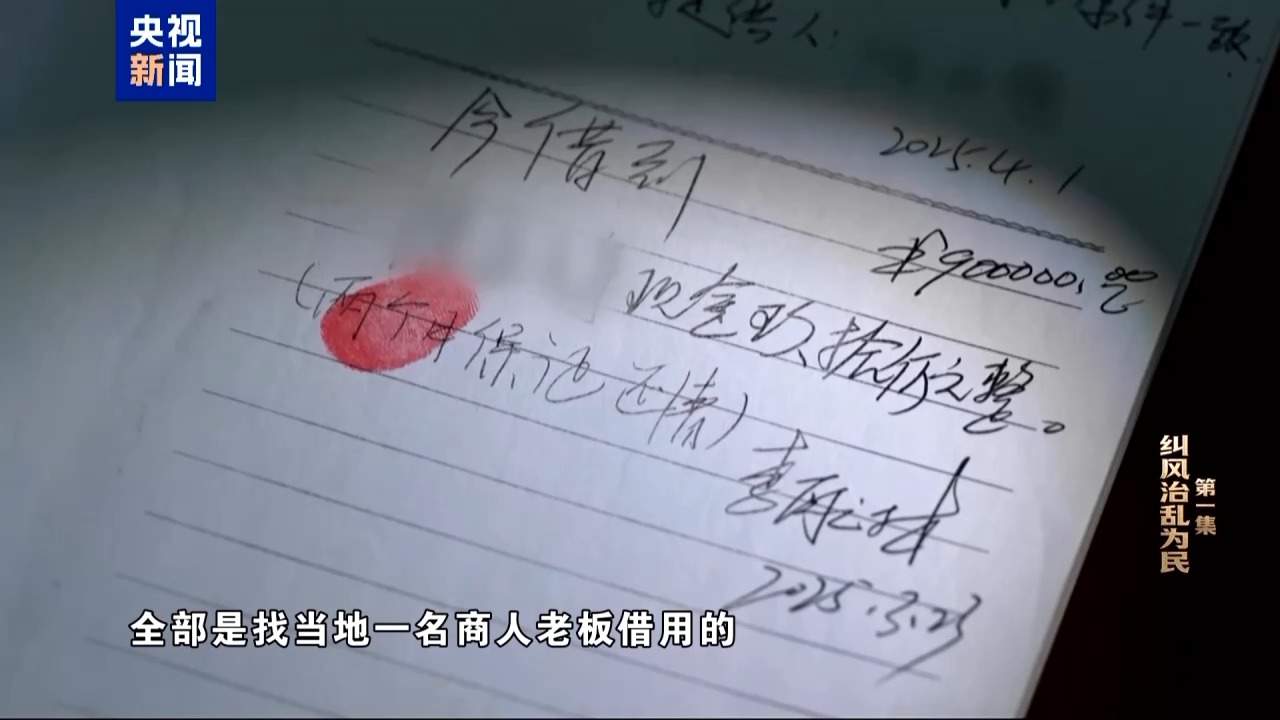 央视
新闻
提供人
件一致.
2025.4.1
今借到
¥900000.00
现金玖拾仟元整。
(两个月保证还清)
2025.3.23
纠风治乱为民
第一集
全部是找当地一名商人老板借用的